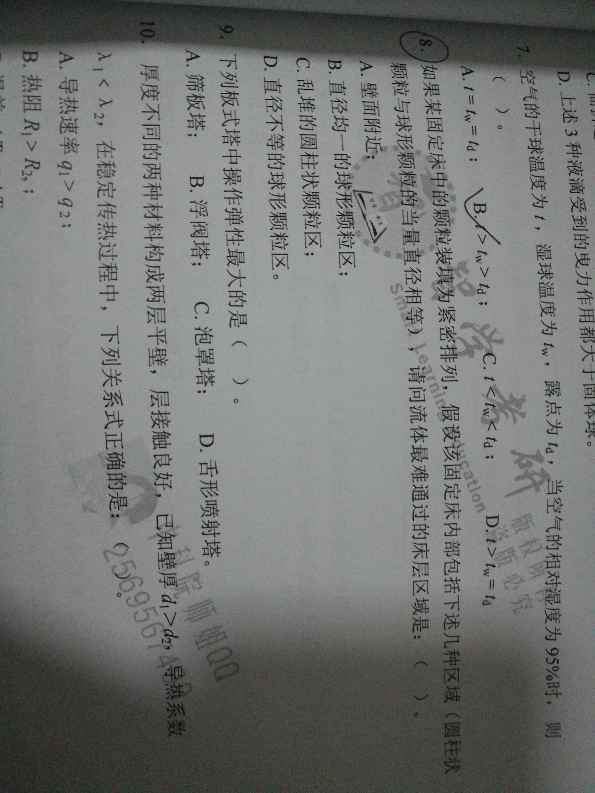 D. 上述 3 种液滴受到的曳力作用都大于固体球。
7. 空气的干球温度为 t，湿球温度为 tw，露点为 td，当空气的相对湿度为 95%时，则
（ ）。
A. t = tw = td； B. t > tw > td； C. t < tw < td； D. t > tw = td
8. 如果某固定床中的颗粒装填为紧密排列，假设该固定床内部包括下述几种区域（圆柱状
颗粒与球形颗粒的当量直径相等），请问流体最难通过的床层区域是：（ ）。
A. 壁面附近；
B. 直径均一的球形颗粒区；
C. 乱堆的圆柱状颗粒区；
D. 直径不等的球形颗粒区。
9. 下列板式塔中操作弹性最大的是（ ）。
A. 筛板塔； B. 浮阀塔； C. 泡罩塔； D. 舌形喷射塔。
10. 厚度不同的两种材料构成两层平壁，层接触良好，已知壁厚 d1>d2，导热系数
λ1 < λ2，在稳定传热过程中，下列关系式正确的是：（ ）。
A. 导热速率 q1 > q2；
B. 热阻 R1 > R2；
学考研
Smart Learning Education
版权所有
盗版必究
科院师姐QQ